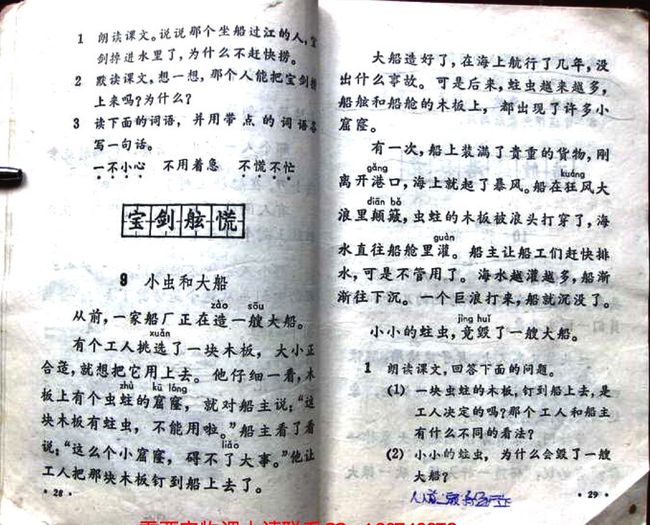 1 朗读课文。说说那个坐船过江的人,宝
剑掉进水里了,为什么不赶快捞。
2 默读课文,想一想,那个人能把宝剑捞
上来吗?为什么?
3 读下面的词语,并用带点的词语各
写一句话。
一不小心 不用着急 不慌不忙
宝剑舷慌
9 小虫和大船
zào sōu
从前,一家船厂正在造一艘大船。
xuǎn
有个工人挑选了一块木板,大小正
合适,就想把它用上去。他仔细一看,木
zhù kū lóng
板上有个虫蛀的窟窿,就对船主说:“这
块木板有蛀虫,不能用啦。”船主看了看
liǎo
说:“这么个小窟窿,碍不了大事。”他让
工人把那块木板钉到船上去了。
· 28 ·
大船造好了,在海上航行了几年,没
出什么事故。可是后来,蛀虫越来越多,
船舷和船舱的木板上,都出现了许多小
窟窿。
有一次,船上装满了贵重的货物,刚
gǎng kuáng
离开港口,海上就起了暴风。船在狂风大
diān bǒ
浪里颠簸,虫蛀的木板被浪头打穿了,海
guàn
水直往船舱里灌。船主让船工们赶快排
水,可是不管用了。海水越灌越多,船渐
渐往下沉。一个巨浪打来,船就沉没了。
jìng huǐ
小小的蛀虫,竟毁了一艘大船。
1 朗读课文,回答下面的问题。
(1) 一块虫蛀的木板,钉到船上去,是
工人决定的吗?那个工人和船主
有什么不同的看法?
(2) 小小的蛀虫,为什么会毁了一艘
大船?
· 29 ·